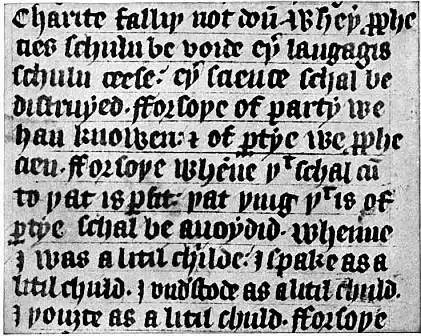 Charite falliþ not doū· wheþ' pphe
cies schulu be voide eþ' langagis
schulu ceese: eþ' science schal be
distruyed· fforsoþe of party we
han knowen: ⁊ of ptye we pphe
cien· fforsoþe whēne þᵗ schal cū
to þat is pfit: þat þing þᵗ is of
ptye schal be auoydid· whenne
I was a litil childe: I spake as a
litil child· I vndˢtode as a litil child·
I þouȝte as a litil child· fforsoþe